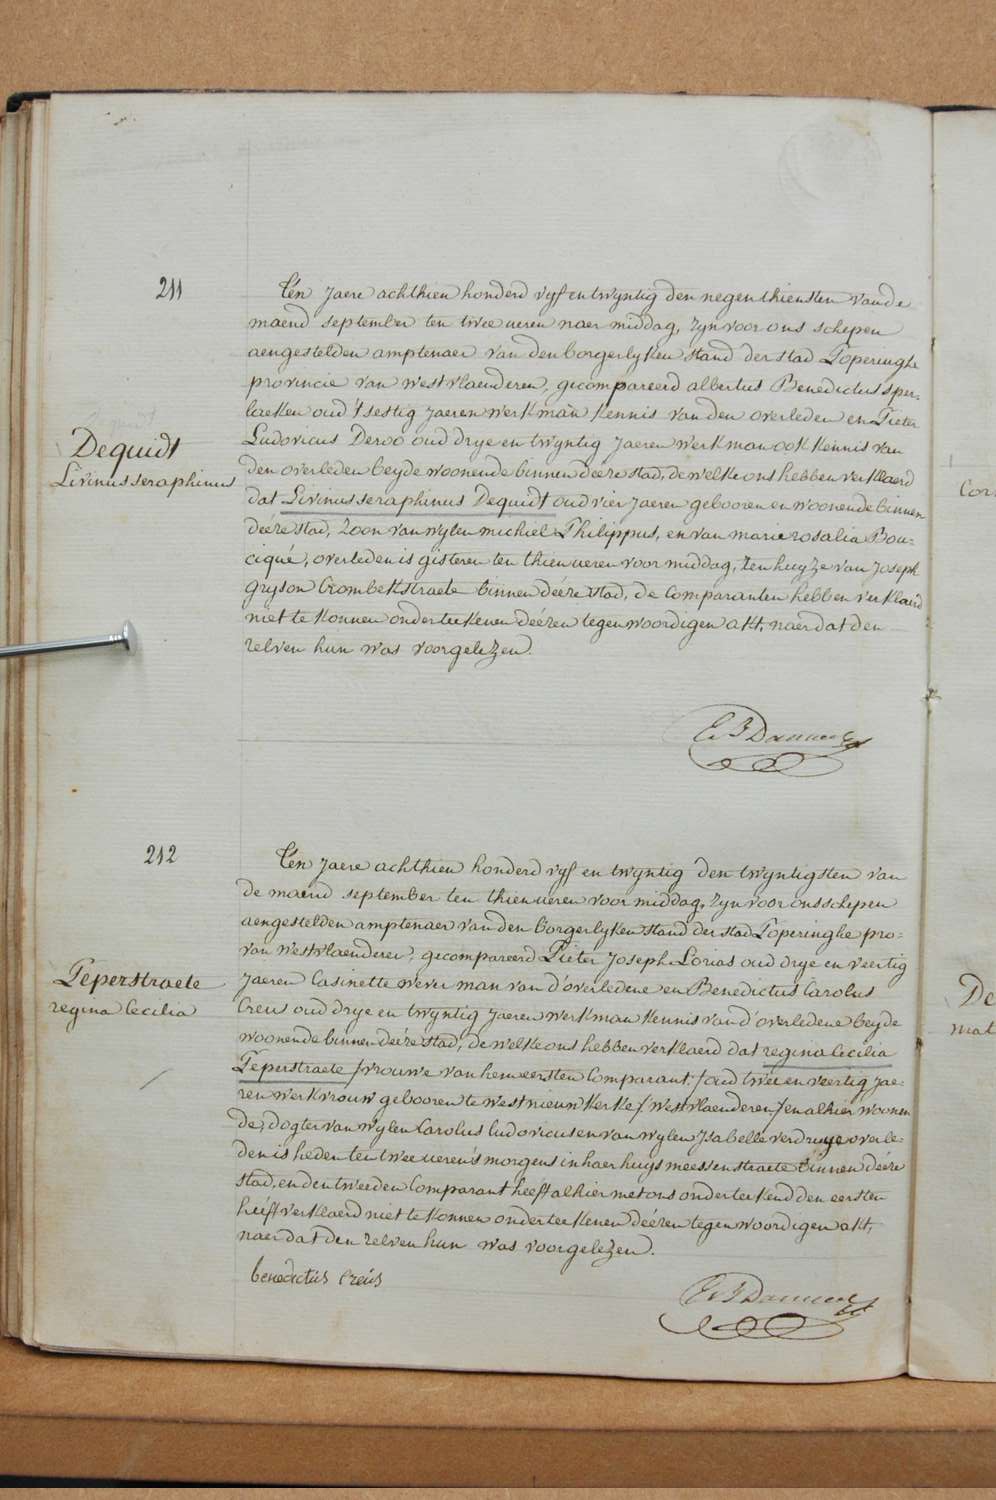 211
Dequidt
Livinus seraphinus
Ten Jaere achthien honderd vyf en twyntig den negenthiensten vande
maend september ten twee ueren naer middag, zyn voor ons schepen
aengestelden amptenaer van den borgerlyken stand der stad Poperinghe
provincie van westvlaenderen, gecompareerd albertus Benedictus sper-
laeken oud 't sestig Jaeren werkman kennis van den overleden en Pieter
Ludovicus Deroo oud drye en twyntig Jaeren werkman ook kennis van
den overleden beyde woonende binnen deéze stad, de welke ons hebben verklaerd
dat Livinus seraphinus Dequidt oud vier Jaeren gebooren en woonende binnen
deéze stad, Zoon van wylen michiel Philippus, en van marie rosalia Bou-
ciqué, overleden is gisteren ten thien ueren voor middag, ten huyze van Joseph
gryson Crombekstraete binnen deéze stad, de Comparanten hebben verklaerd
niet te konnen onderteekenen deézen tegenwoordigen akt, naer dat den
zelven hun was voorgelezen.
212
Peperstraete
regina Cecilia
Ten Jaere achthien honderd vyf en twyntig den twyntigsten van
de maend september ten thien ueren voor middag, zyn voor ons schepen
aengestelden amptenaer van den borgerlyken stand der stad Poperinghe pro-
van westvlaenderen, gecompareerd Pieter Joseph Lorias oud drye en veertig
Jaeren Casinette wever man van d'overledene en Benedictus Carolus
Creus oud drye en twyntig Jaeren werkman kennis van d'overledene beyde
woonende binnen deéze stad, de welke ons hebben verklaerd dat regina Cecilia
Peperstraete /vrouwe van hem eersten Comparant./ oud twee en veertig Jae-
ren werkvrouw gebooren te westnieuwkerke /westvlaenderen/ en alhier woonen
de, dogter van wylen Carolus ludovicus en van wylen Isabelle verdruye overle-
den is heden ten twee ueren 's morgens in haer huys meessenstraete binnen deéze
stad, en den tweeden Comparant heeft alhier met ons onderteekend den eersten
heéft verklaerd niet te konnen onderteekenen deézen tegenwoordigen akt,
naer dat den zelven hun was voorgelezen.
benedictus Creus